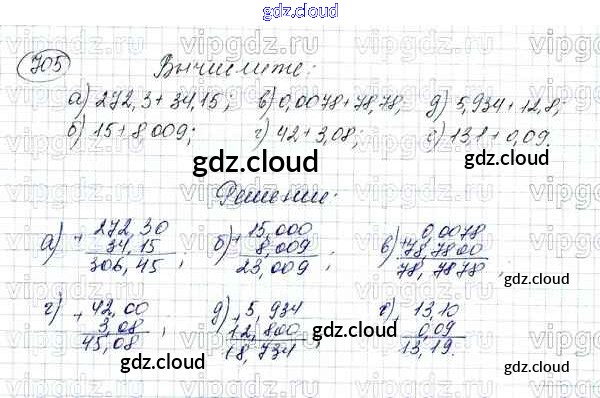 gdz.cloud
705 Вычислите:
а) 272,3 + 34,15; в) 0,0078 + 78,78; д) 5,934 + 12,8;
б) 15 + 8,009; г) 42 + 3,08; е) 13,1 + 0,09.
gdz.cloud gdz.cloud
Решение:
а) + 272,30 б) + 15,000 в) + 0,0078
34,15 8,009 78,7800
306,45; 23,009; 78,7878;
gdz.cloud
г) + 42,00 д) + 5,934 е) + 13,10
3,08 12,800 0,09
45,08; 18,734; 13,19.
gdz.cloud gdz.cloud
vipgdz.ru vipgdz.ru vipgdz.ru vipgdz.ru